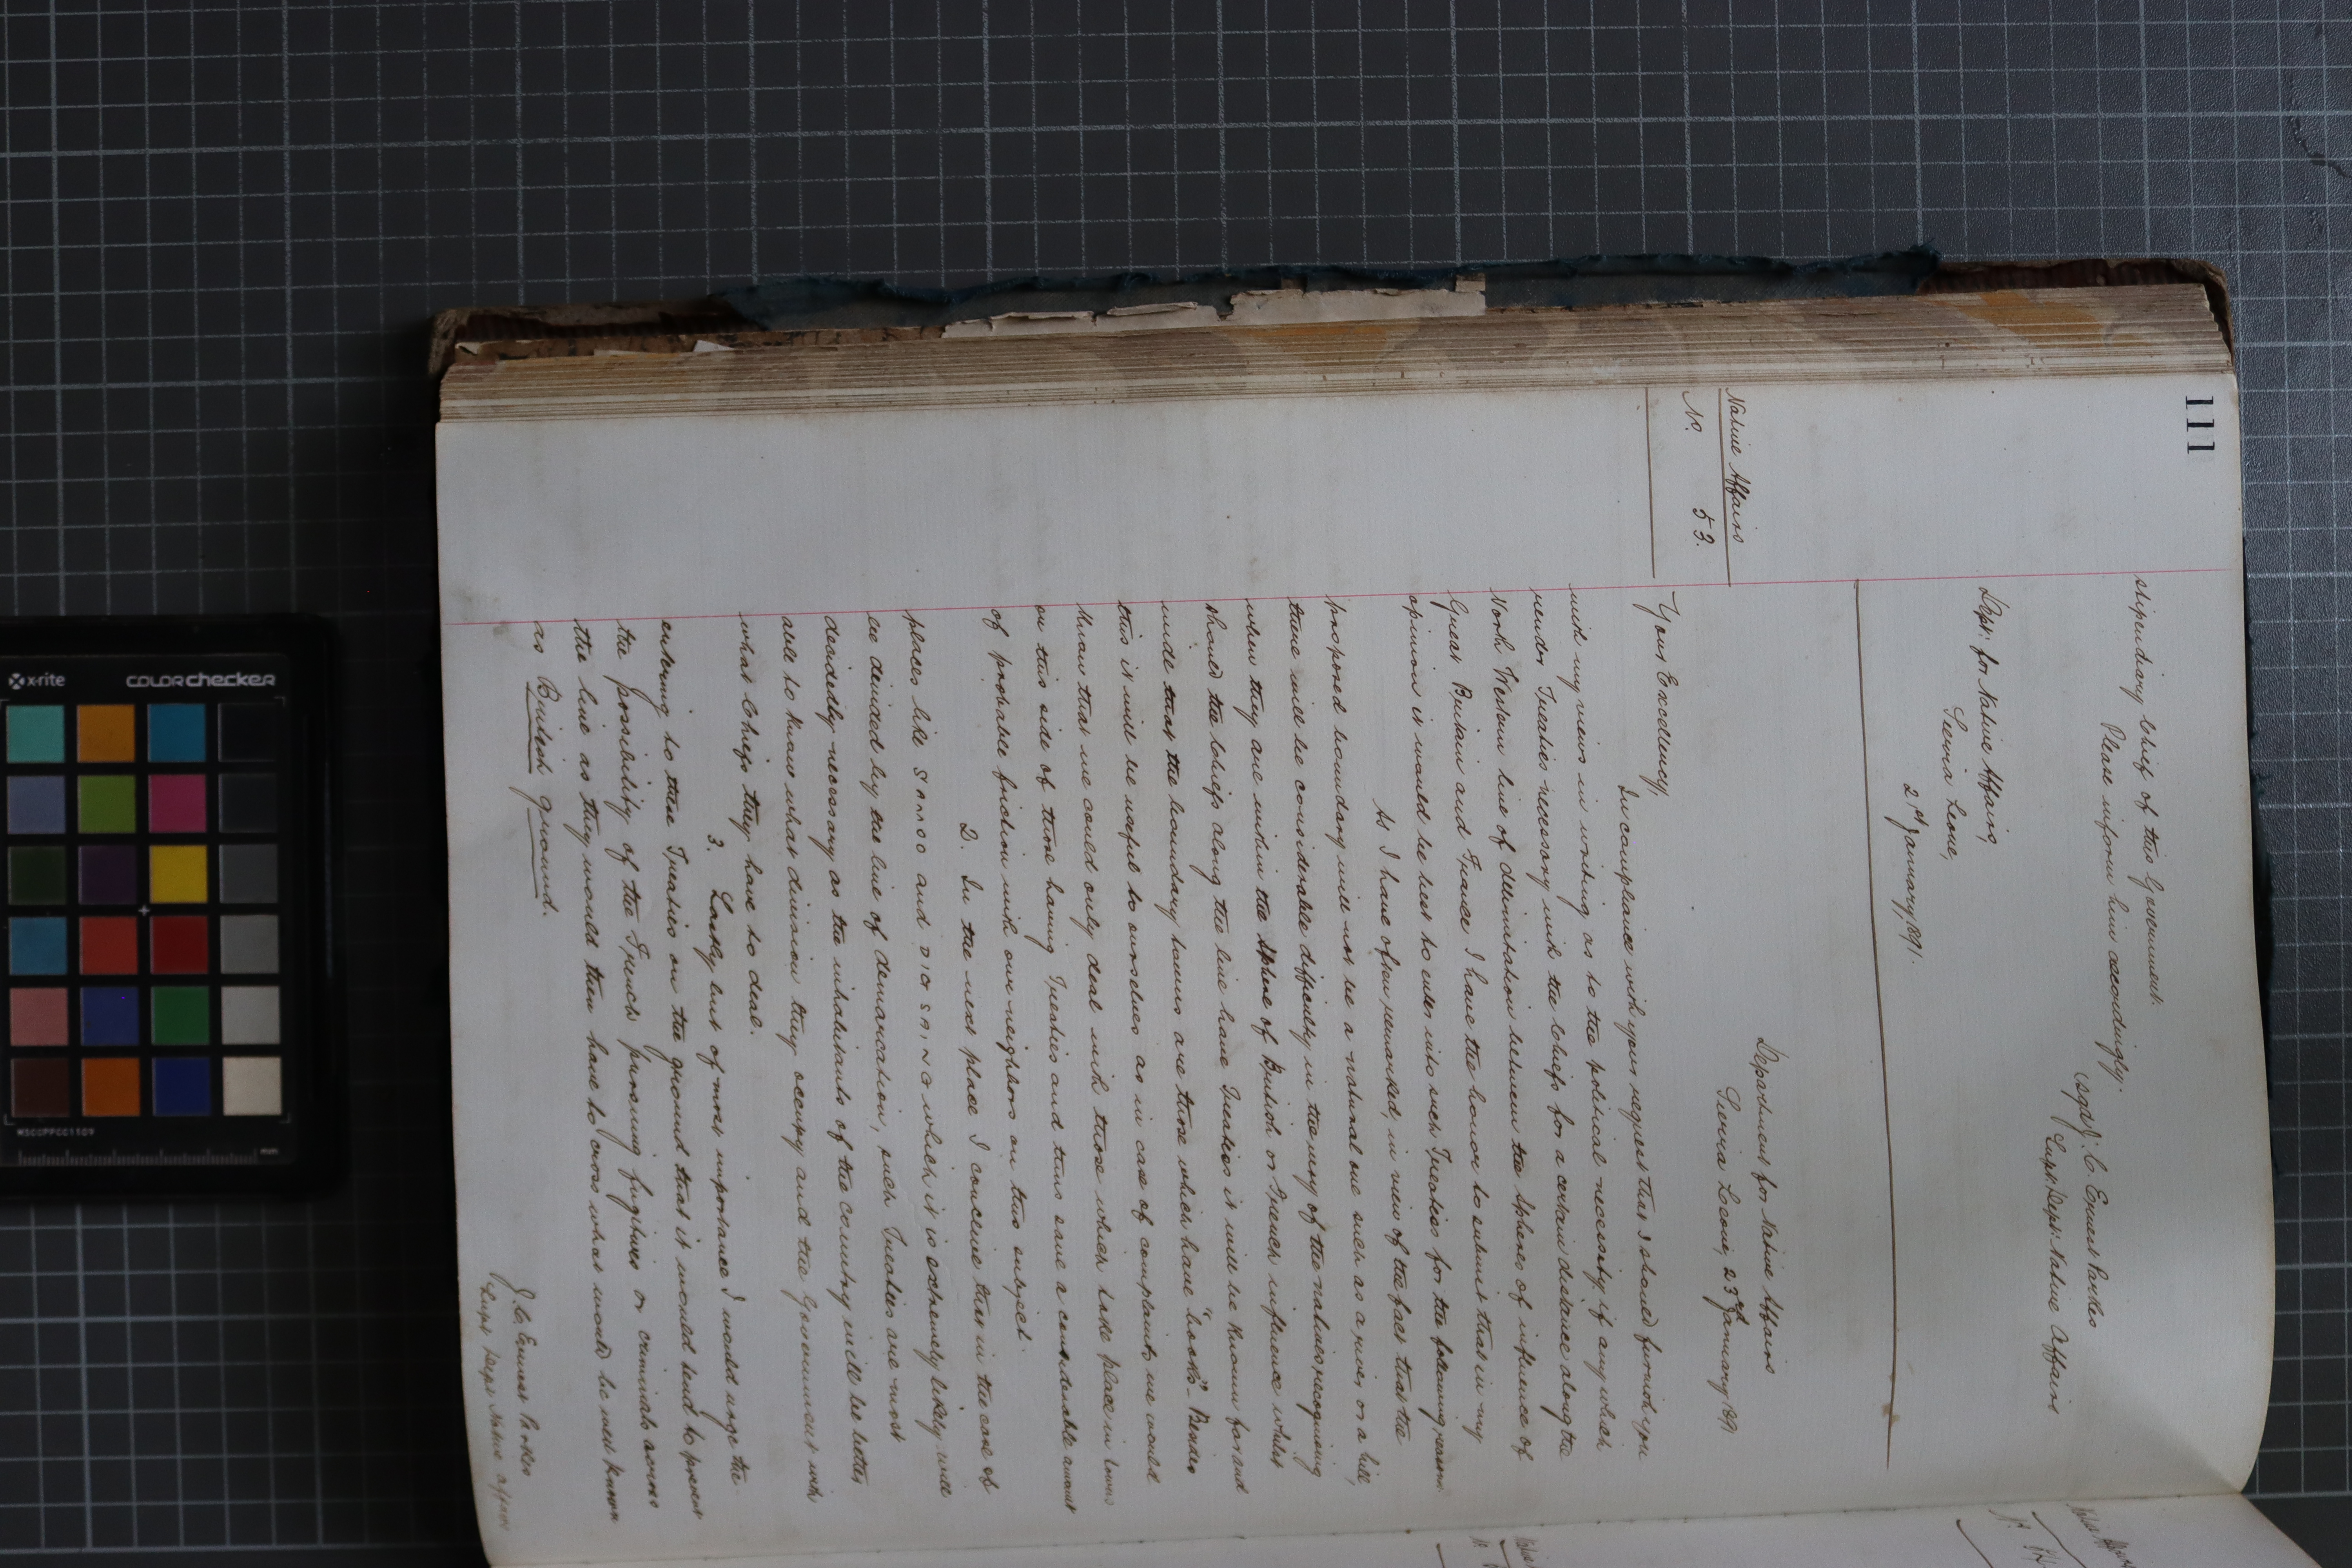 111
stipendiary Chief of this Government.
Please inform him accordingly.
(sgd) J. C. Ernest Parkes
Supt. Dept. Native Affairs
Dept. for Native Affairs,
Sierra Leone,
2 January, 1891.
Native Affairs
No. 53.
Department for Native Affairs
Sierra Leone, 23rd January 1891
Your Excellency,
In compliance with your request that I should furnish you
with my views in writing as to the political necessity if any which
renders Treaties necessary with the Chiefs for a certain distance along the
North Western line of delimitation between the spheres of influence of
Great Britain and France I have the honor to submit that in my
opinion it would be best to enter into such Treaties for the following reasons.
As I have often remarked, in view of the fact that the
proposed boundary will not be a natural one such as a river or a hill,
there will be considerable difficulty in the way of the natives recognising
when they are within the sphere of British or French influence whilst
should the Chiefs along the line have Treaties it will be known far and
wide that the boundary towns are those which have "books". Besides
this it will be useful to ourselves as in case of complaints we would
know that we could only deal with those which take place in towns
on this side of those having Treaties and thus save a considerable amount
of probable friction with our neighbors on this subject.
2. In the next place I conceive that in the case of
places like Samo and which it is extremely likely will
be divided by the line of demarcation, such Treaties are most
decidedly necessary as the inhabitants of the country will be better
able to know what division they occupy and the Government with
what Chiefs they have to deal.
3. Lastly but of most importance I would urge the
entering to these Treaties on the ground that it would tend to prevent
the possibility of the French pursuing fugitives or criminals across
the line as they would then have to cross what would be well known
as British ground.
J. C. Ernest Parkes
Supt Dept Native Affairs
x-rite
colorchecker
MSCCPPCC1109
mm